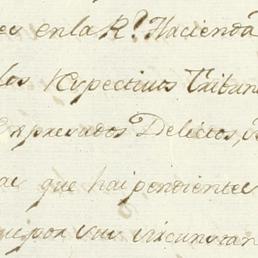 en la R.ˡ Hacienda
los respectivos Tribun
expresados Delictos,
que hai pendientes
por sus circunstan